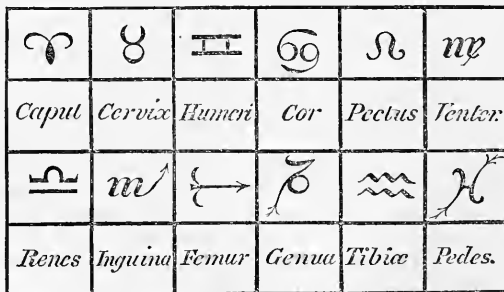 Caput Cervix Humeri Cor Pectus Venter.
Renes Inguina Femur Genua Tibiæ Pedes.